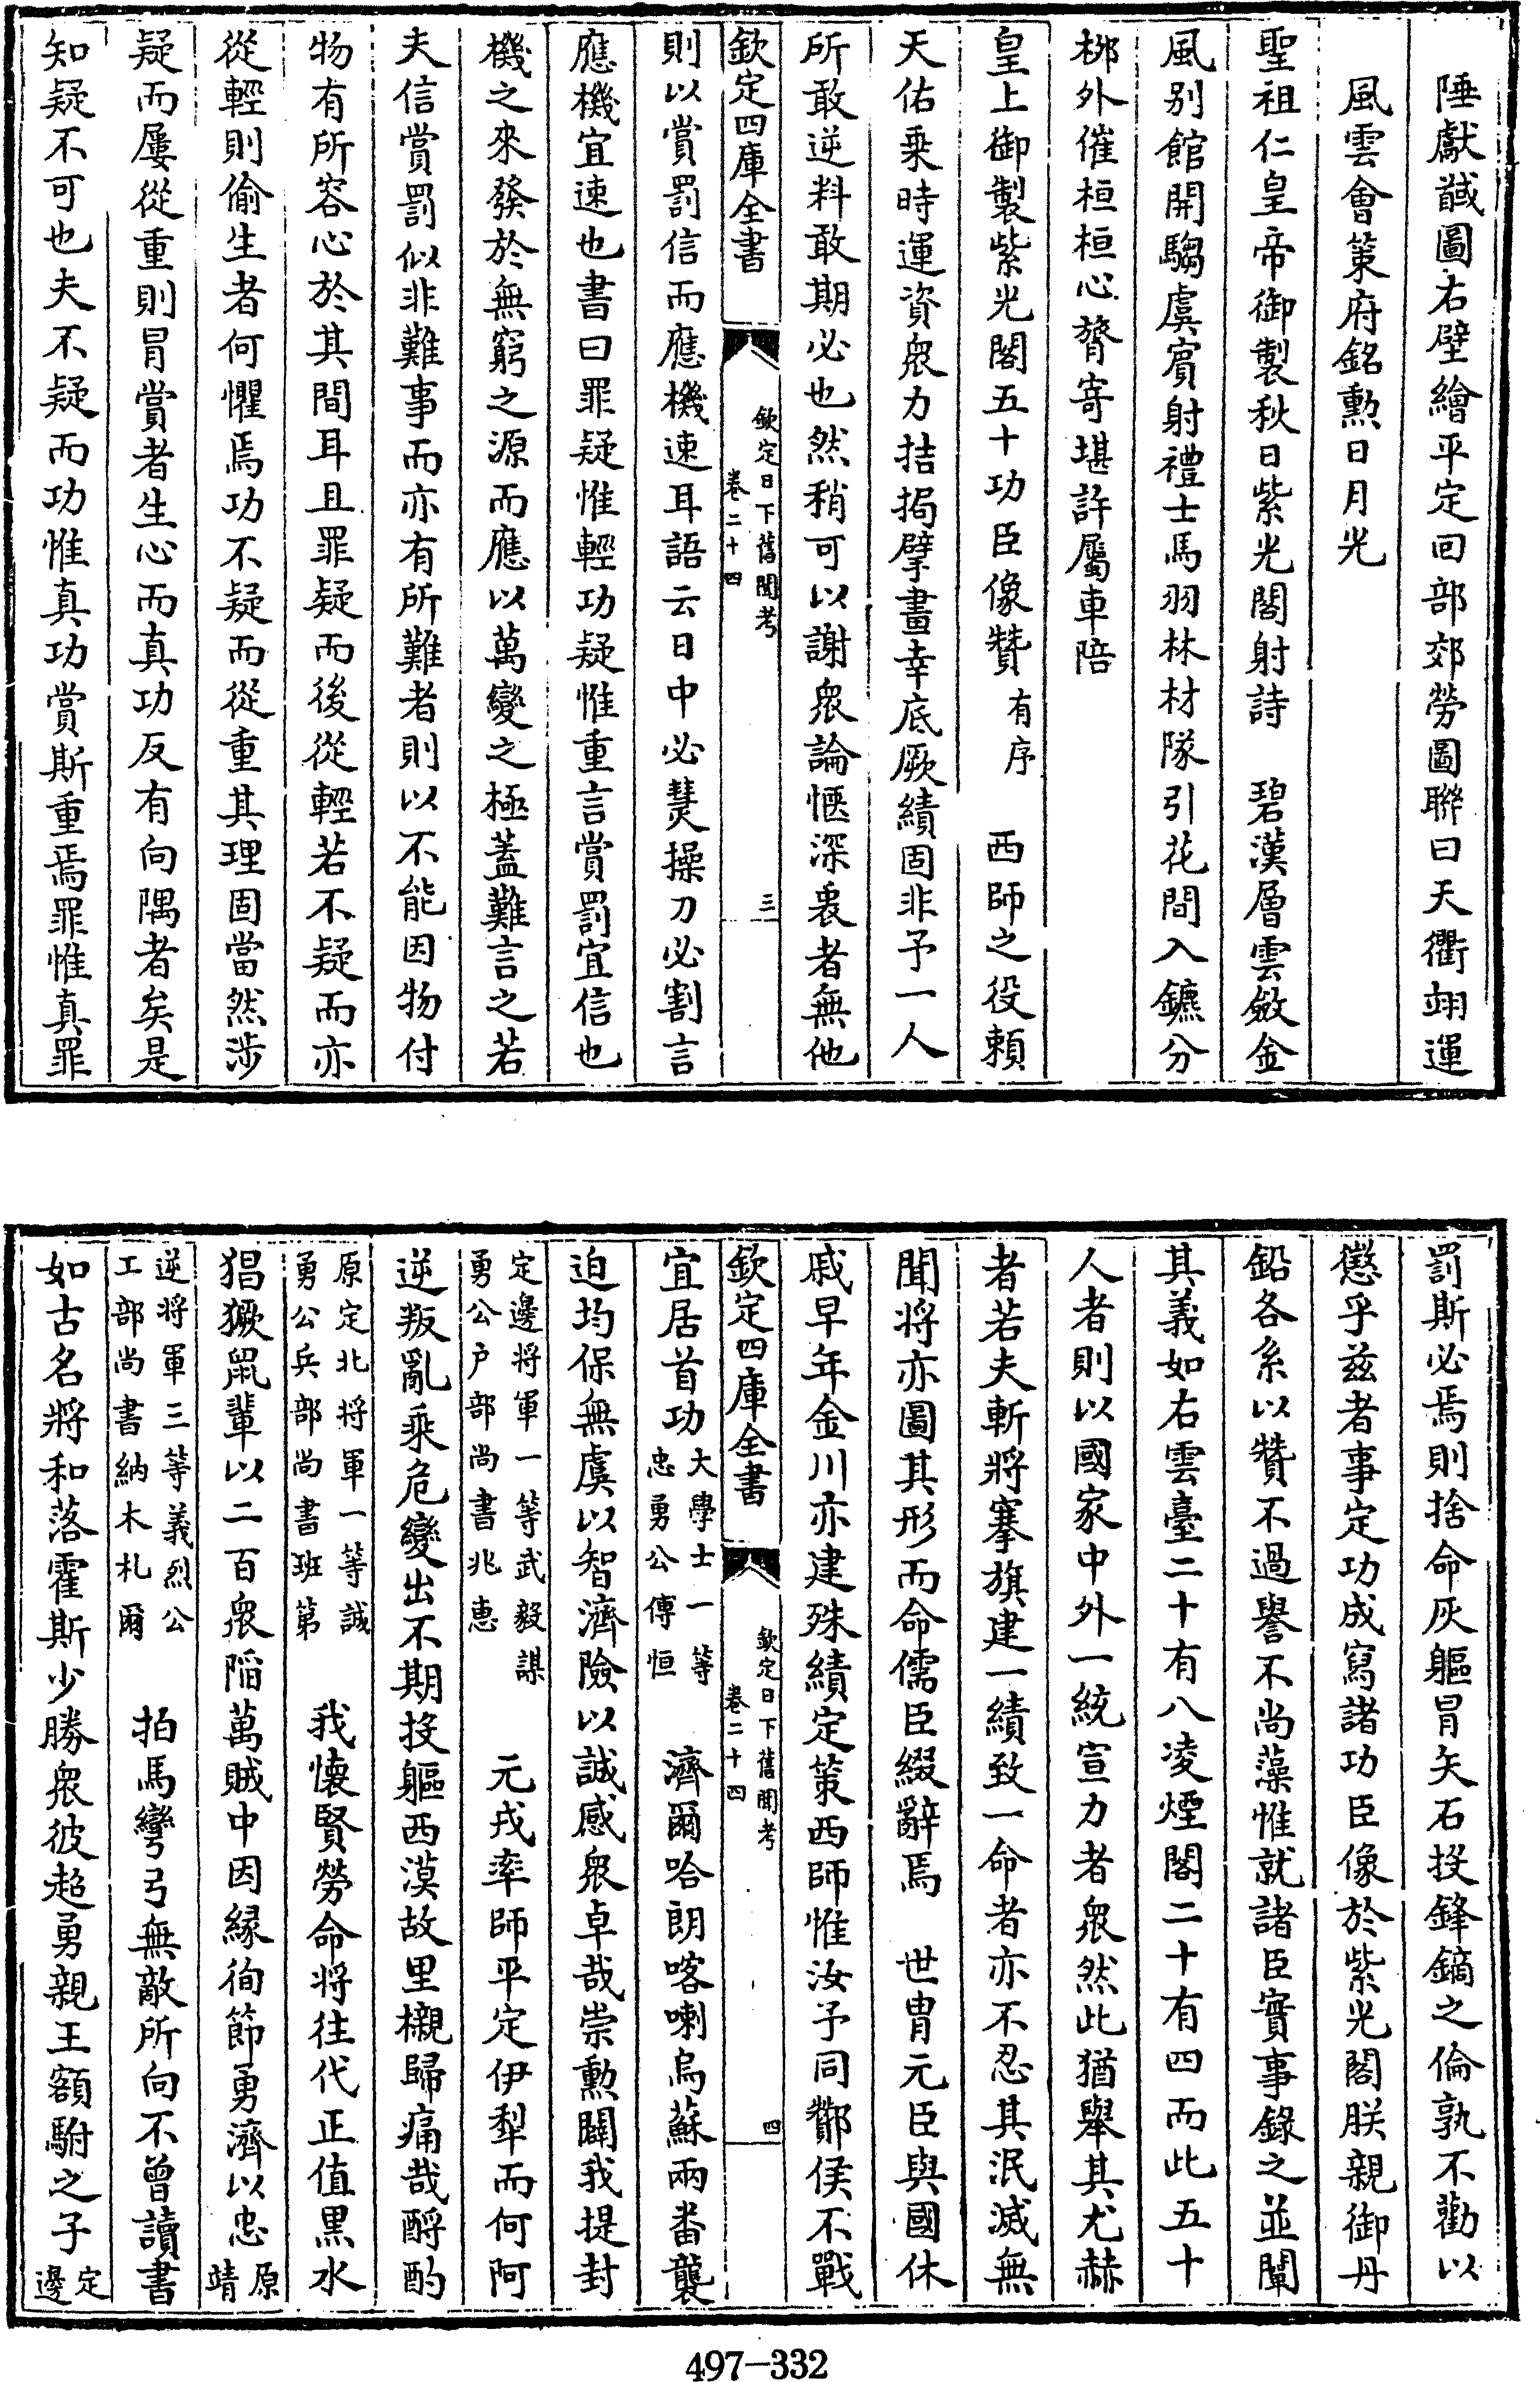 陲獻馘圖右壁繪平定回部郊勞圖聯曰天衢翊運
風雲會策府銘勲日月光
聖祖仁皇帝御製秋日紫光閣射詩　碧漢層雲斂金
風别館開騶虞賓射禮士馬羽林材隊引花間入鑣分
栁外催桓桓心膂寄堪許屬車陪
皇上御製紫光閣五十功臣像贊有序　西師之役賴
天佑乗時運資衆力拮掲擘畫幸底厥績固非予一人
所敢逆料敢期必也然稍可以謝衆論愜深衷者無他
欽定四庫全書
欽定日下舊聞考
卷二十四
三
則以賞罰信而應機速耳語云日中必熭操刀必割言
應機宜速也書曰罪疑惟輕功疑惟重言賞罰宜信也
機之來發於無窮之源而應以萬變之極蓋難言之若
夫信賞罰似非難事而亦有所難者則以不能因物付
物有所容心於其間耳且罪疑而後從輕若不疑而亦
從輕則偷生者何懼焉功不疑而從重其理固當然涉
疑而屢從重則冒賞者生心而真功反有向隅者矣是
知疑不可也夫不疑而功惟真功賞斯重焉罪惟真罪
罰斯必焉則捨命灰軀冒矢石投鋒鏑之倫孰不勸以
懲乎兹者事定功成寫諸功臣像於紫光閣朕親御丹
鉛各系以贊不過譽不尚藻惟就諸臣實事錄之並闡
其義如右雲臺二十有八凌煙閣二十有四而此五十
人者則以國家中外一統宣力者衆然此猶舉其尤赫
者若夫斬將搴旗建一績致一命者亦不忍其泯滅無
聞將亦圖其形而命儒臣綴辭焉　世胄元臣與國休
戚早年金川亦建殊績定策西師惟汝予同酇侯不戰
欽定四庫全書
欽定日下舊聞考
卷二十四
四
宜居首功大學士一等忠勇公傅恒　濟爾哈朗喀喇烏蘇兩畨襲
迫均保無虞以智濟險以誠感衆卓哉崇勲闢我提封
定邊将軍一等武毅謀勇公户部尚書兆惠　元戎率師平定伊犁而何阿
逆叛亂乘危變出不期投軀西漠故里櫬歸痛哉酹酌
原定北将軍一等誠勇公兵部尚書班第　我懐賢勞命将往代正值黒水
猖獗鼠輩以二百衆陷萬賊中因緣徇節勇濟以忠原靖
逆将軍三等義烈公工部尚書納木札爾　拍馬彎弓無敵所向不曾讀書
如古名將和落霍斯少勝衆彼超勇親王額駙之子定邊
497-332